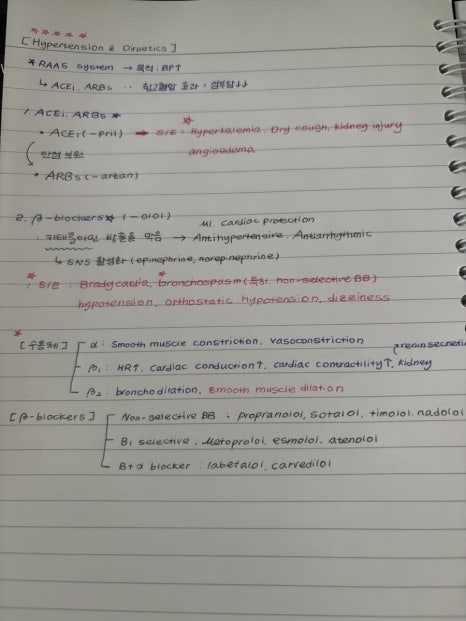 ☆☆☆☆☆
[Hypertension & Diruetics]
* RAAS System → 목적 : BP↑
↳ ACEi, ARBs ·· 항고혈압 효과, 심부담↓↓
1. ACEi, ARBs ☆
• ACEi (-pril) → S/E : Hyperkalemia, Dry cough, kidney injury
angioedema
단점 보완
• ARBs (-artan)
2. β-blockers☆ (-olol)
MI. cardiac protection
: 카테콜아민 방출을 막음 → Antihypertensive, Antiarrhythmic
↳ SNS 활성화 (epinephrine, norepinephrine)
: S/E : Bradycardia, bronchospasm (특히, non-selective BB)
hypotension, orthostatic hypotension, dizziness
[수용체] α : Smooth muscle constriction, vasoconstriction
renin secretio
β1 : HR↑, cardiac conduction↑, cardiac contractility↑, kidney
β2 : bronchodilation, smooth muscle dilation
[β-blockers] Non-selective BB : propranolol, sotalol, timolol, nadolol
B1 selective : Metoprolol, esmolol, atenolol
B+α blocker : labetalol, carvedilol